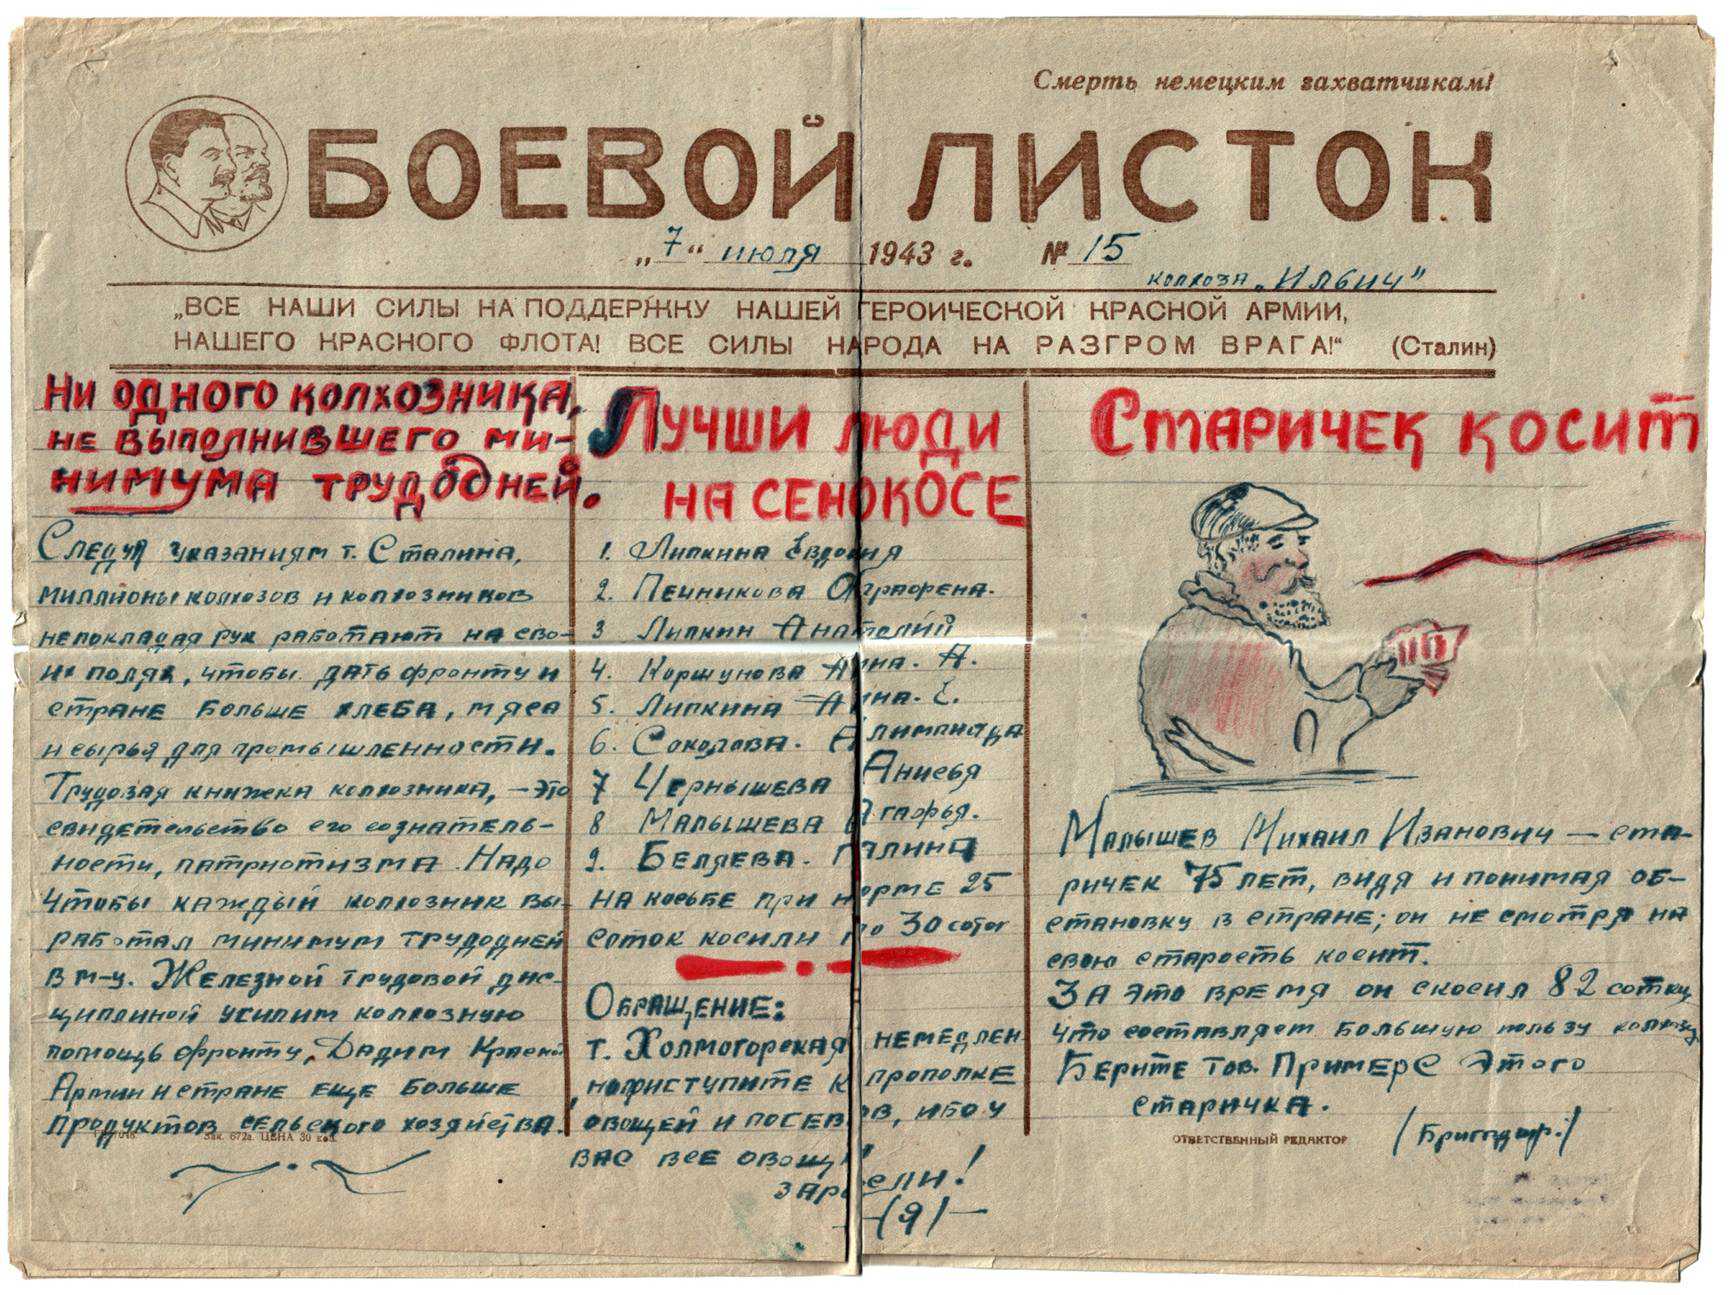 Смерть немецким захватчикам!
БОЕВОЙ ЛИСТОК
„7“ июля 1943 г. № 15
колхоза „Ильич”
„ВСЕ НАШИ СИЛЫ НА ПОДДЕРЖКУ НАШЕЙ ГЕРОИЧЕСКОЙ КРАСНОЙ АРМИИ,
НАШЕГО КРАСНОГО ФЛОТА! ВСЕ СИЛЫ НАРОДА НА РАЗГРОМ ВРАГА!“ (Сталин)
Ни одного колхозника,
не выполнившего ми-
нимума трудодней.
Следуя указаниям т. Сталина,
миллионы колхозов и колхозников
непокладая рук работают на сво-
их полях, чтобы дать фронту и
стране больше хлеба, мяса
и сырья для промышленности.
Трудовая книжка колхозника, – это
свидетельство его сознатель-
ности, патриотизма. Надо
чтобы каждый колхозник вы-
работал минимум трудодней
в м-ц. Железной трудовой дис-
циплиной усилим колхозную
помощь фронту, Дадим Красной
Армии и стране еще больше
продуктов сельского хозяйства.
Зак. 672а. ЦЕНА 30 коп.
Лучши люди
на сенокосе
1. Липкина Евдокия
2. Печникова Ографена.
3 Липкин Анатолий
4. Коршунова Анна. А.
5. Липкина Анна. Е.
6. Соколова. Алимпиада
7 Чернышева Анисья
8 Малышева Агафья.
9. Беляева. Галина
на косьбе при норме 25
соток косили по 30 соток
Обращение:
т. Холмогорская немедлен-
но приступите к прополке
овощей и посевов, ибо у
вас все овощи
заросли!
–(Я)–
Старичек косит
Малышев Михаил Иванович – ста-
ричек 75 лет, видя и понимая об-
становку в стране; он не смотря на
свою старость косит.
За это время он скосил 82 сотки
что составляет большую пользу колхозу
Берите тов. Пример с этого
старичка.
ОТВЕТСТВЕННЫЙ РЕДАКТОР (Бригадир.)